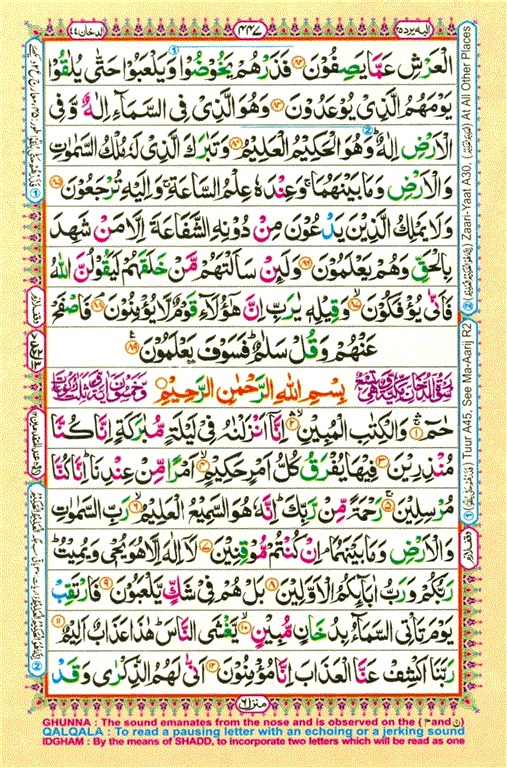 الدخان ٤٤
٤٤٧
اليه يرد ٢٥
الْعَرْشِ عَمَّا يَصِفُوْنَ ﴿٨٢﴾ فَذَرْهُمْ يَخُوْضُوْا وَيَلْعَبُوْا حَتّٰى يُلٰقُوْا
يَوْمَهُمُ الَّذِىْ يُوْعَدُوْنَ ﴿٨٣﴾ وَهُوَ الَّذِىْ فِى السَّمَآءِ اِلٰهٌ وَّفِى
الْاَرْضِ اِلٰهٌ ؕ وَهُوَ الْحَكِيْمُ الْعَلِيْمُ ﴿٨٤﴾ وَتَبٰرَكَ الَّذِىْ لَهٗ مُلْكُ السَّمٰوٰتِ
وَالْاَرْضِ وَمَا بَيْنَهُمَا ۚ وَعِنْدَهٗ عِلْمُ السَّاعَةِ ۚ وَاِلَيْهِ تُرْجَعُوْنَ ﴿٨٥﴾
وَلَا يَمْلِكُ الَّذِيْنَ يَدْعُوْنَ مِنْ دُوْنِهِ الشَّفَاعَةَ اِلَّا مَنْ شَهِدَ
بِالْحَقِّ وَهُمْ يَعْلَمُوْنَ ﴿٨٦﴾ وَلَئِنْ سَاَلْتَهُمْ مَّنْ خَلَقَهُمْ لَيَقُوْلُنَّ اللّٰهُ
فَاَنّٰى يُؤْفَكُوْنَ ﴿٨٧﴾ وَقِيْلِهٖ يٰرَبِّ اِنَّ هٰٓؤُلَآءِ قَوْمٌ لَّا يُؤْمِنُوْنَ ﴿٨٨﴾ فَاصْفَحْ
عَنْهُمْ وَقُلْ سَلٰمٌ ؕ فَسَوْفَ يَعْلَمُوْنَ ﴿٨٩﴾
بِسْمِ اللّٰهِ الرَّحْمٰنِ الرَّحِيْمِ
حٰمٓ ﴿١﴾ وَالْكِتٰبِ الْمُبِيْنِ ﴿٢﴾ اِنَّاۤ اَنْزَلْنٰهُ فِىْ لَيْلَةٍ مُّبٰرَكَةٍ اِنَّا كُنَّا
مُنْذِرِيْنَ ﴿٣﴾ فِيْهَا يُفْرَقُ كُلُّ اَمْرٍ حَكِيْمٍ ﴿٤﴾ اَمْرًا مِّنْ عِنْدِنَا ؕ اِنَّا كُنَّا
مُرْسِلِيْنَ ﴿٥﴾ رَحْمَةً مِّنْ رَّبِّكَ ؕ اِنَّهٗ هُوَ السَّمِيْعُ الْعَلِيْمُ ﴿٦﴾ رَبِّ السَّمٰوٰتِ
وَالْاَرْضِ وَمَا بَيْنَهُمَا ۘ اِنْ كُنْتُمْ مُّوْقِنِيْنَ ﴿٧﴾ لَاۤ اِلٰهَ اِلَّا هُوَ يُحْىٖ وَيُمِيْتُ ؕ
رَبُّكُمْ وَرَبُّ اٰبَآئِكُمُ الْاَوَّلِيْنَ ﴿٨﴾ بَلْ هُمْ فِىْ شَكٍّ يَّلْعَبُوْنَ ﴿٩﴾ فَارْتَقِبْ
يَوْمَ تَاْتِى السَّمَآءُ بِدُخَانٍ مُّبِيْنٍ ﴿١٠﴾ يَّغْشَى النَّاسَ ؕ هٰذَا عَذَابٌ اَلِيْمٌ ﴿١١﴾
رَبَّنَا اكْشِفْ عَنَّا الْعَذَابَ اِنَّا مُؤْمِنُوْنَ ﴿١٢﴾ اَنّٰى لَهُمُ الذِّكْرٰى وَقَدْ
منزل ٦
① Tuur A45, See Ma-Aarij R2
② Zaari-Yaat A30, At All Other Places
GHUNNA : The sound emanates from the nose and is observed on the (ن and م)
QALQALA : To read a pausing letter with an echoing or a jerking sound
IDGHAM : By the means of SHADD, to incorporate two letters which will be read as one